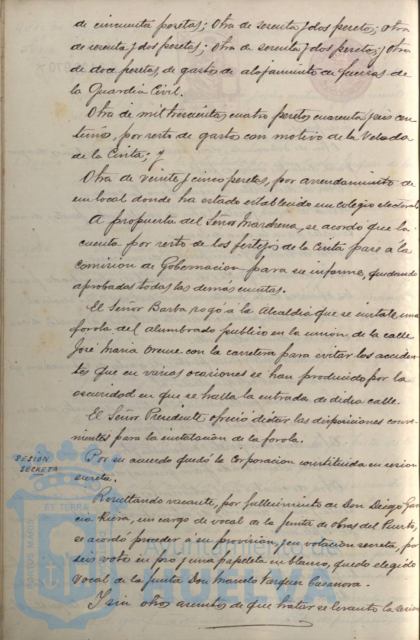 de cincuenta pesetas; Otra de sesenta y dos pesetas; otra
de sesenta y dos pesetas; Otra de sesenta y dos pesetas; y Otra
de doce pesetas, de gastos de alojamiento de fuerzas de
la Guardia Civil.
Otra de mil trescientas cuatro pesetas cuarenta y seis cen-
timos, por resto de gastos con motivo de la Velada
de la Cinta; y
Otra de veinte y cinco pesetas, por arrendamiento de
un local donde ha estado establecido un colegio electoral
A propuesta del Señor Marchena, se acordó que la
cuenta por resto de los festejos de la Cinta pase á la
Comisión de Gobernacion para su informe, quedando
aprobadas todas las demás cuentas.
El Señor Barba rogó á la Alcaldía que se instale una
farola del alumbrado público en la unión de la calle
José Maria con la carretera para evitar los acciden-
tes que en varias ocasiones se han producido por la
oscuridad en que se halla la entrada de dicha calle.
El Señor Presidente ofreció dictar las disposiciones conve-
nientes para la instalación de la farola.
SESIÓN
SECRETA
Por su acuerdo quedó la Corporacion constituida en sesion
secreta.
Resultando vacante, por fallecimiento de Don Diego Gar-
cia Riera, un cargo de vocal de la Junta de obras del Puerto,
se acordó proceder á su provision, y en votación secreta, por
seis votos en pró y una papeleta en blanco, quedó elegido
Vocal de la Junta Don Marcelo Vazquez Casanova.
Y sin otros asuntos de que tratar se levantó la sesion
PORTUS MARIS
ET TERRAE
Ayuntamiento de
HUELVA